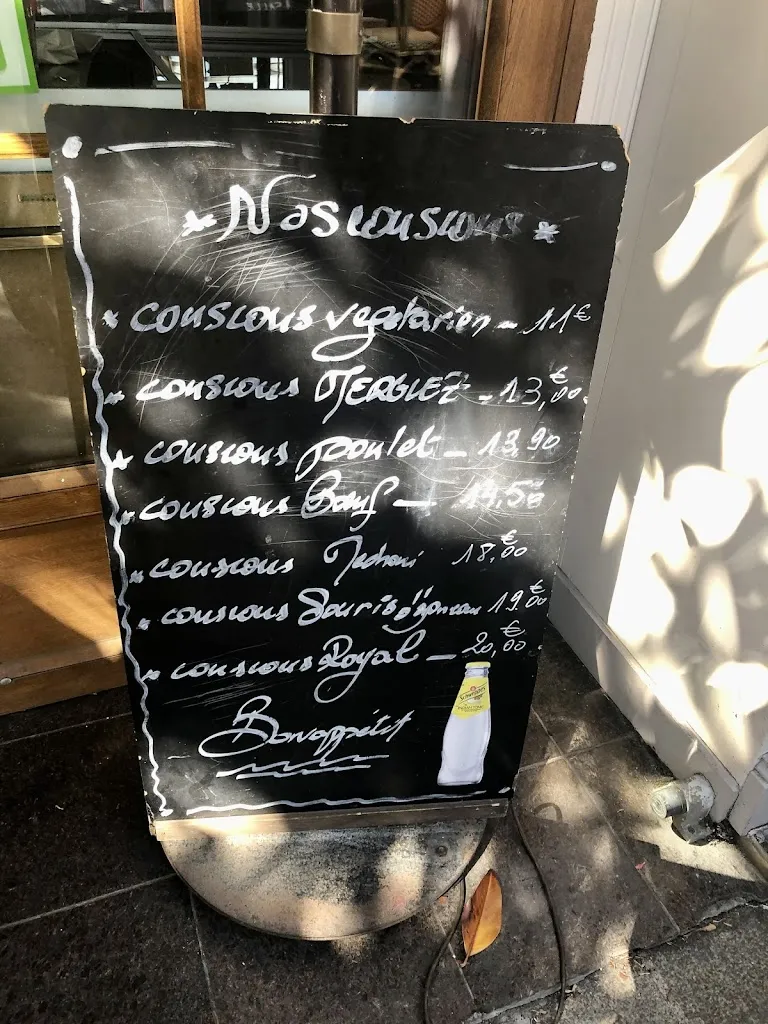 * Nos couscous *
* couscous vegetarien - 11€
* couscous MERGUEZ - 13,00€
* couscous poulet - 13,90
* couscous Bœuf - 14,50
* couscous Mechoui 18,00€
* couscous Souris d'agneau 19,00€
* couscous Royal - 20,00€
Bon appétit
Schweppes